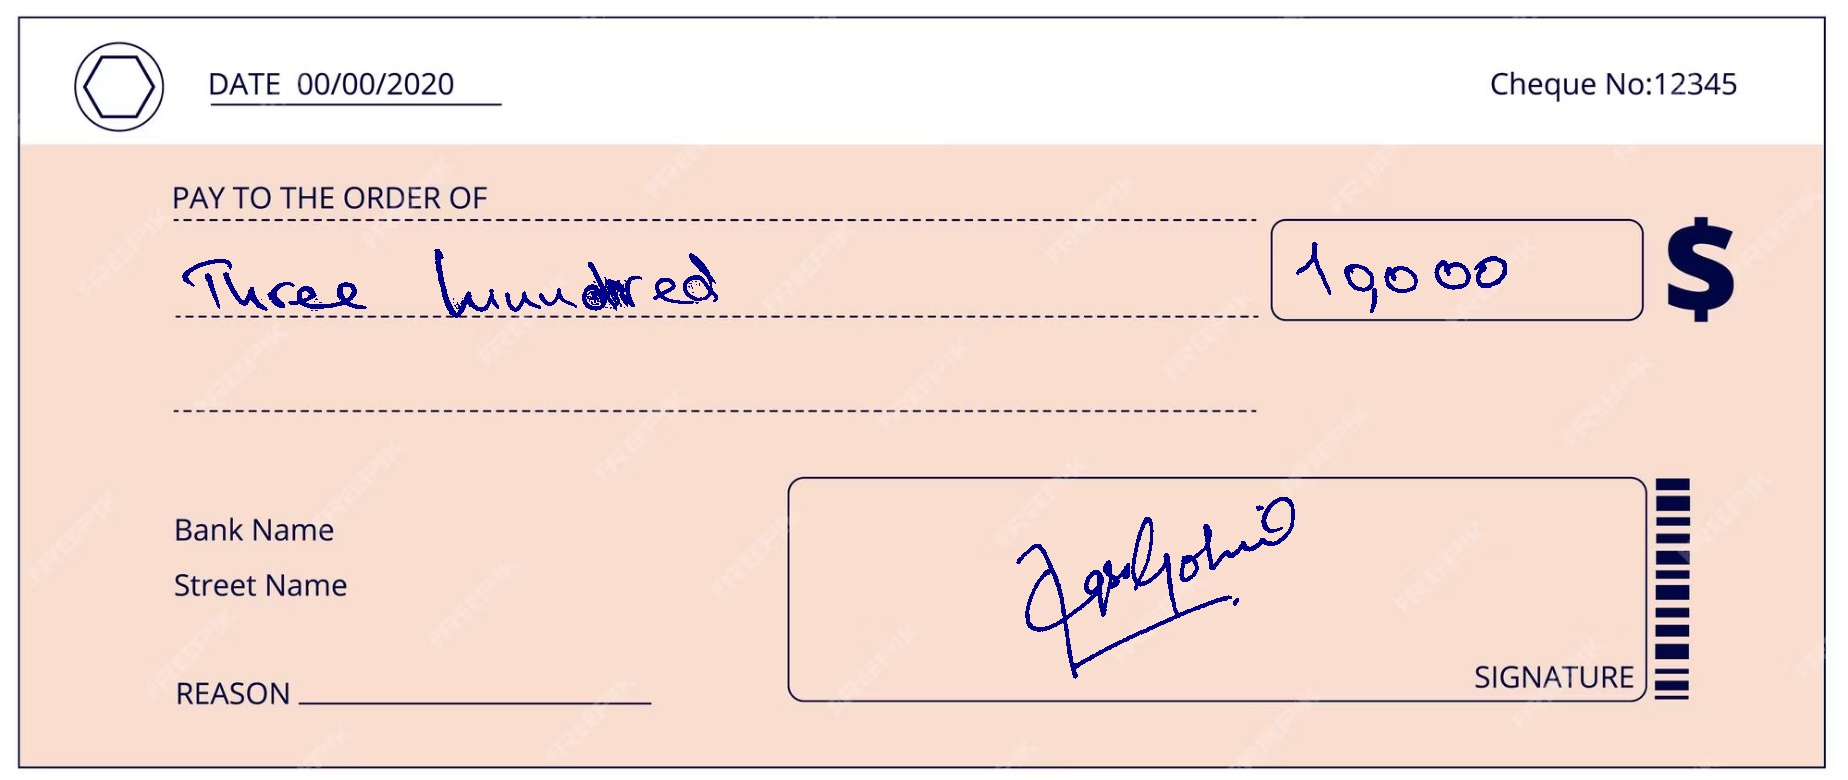 DATE 00/00/2020
Cheque No:12345
PAY TO THE ORDER OF
Three hundred
10,000
$
Bank Name
Street Name
REASON
SIGNATURE